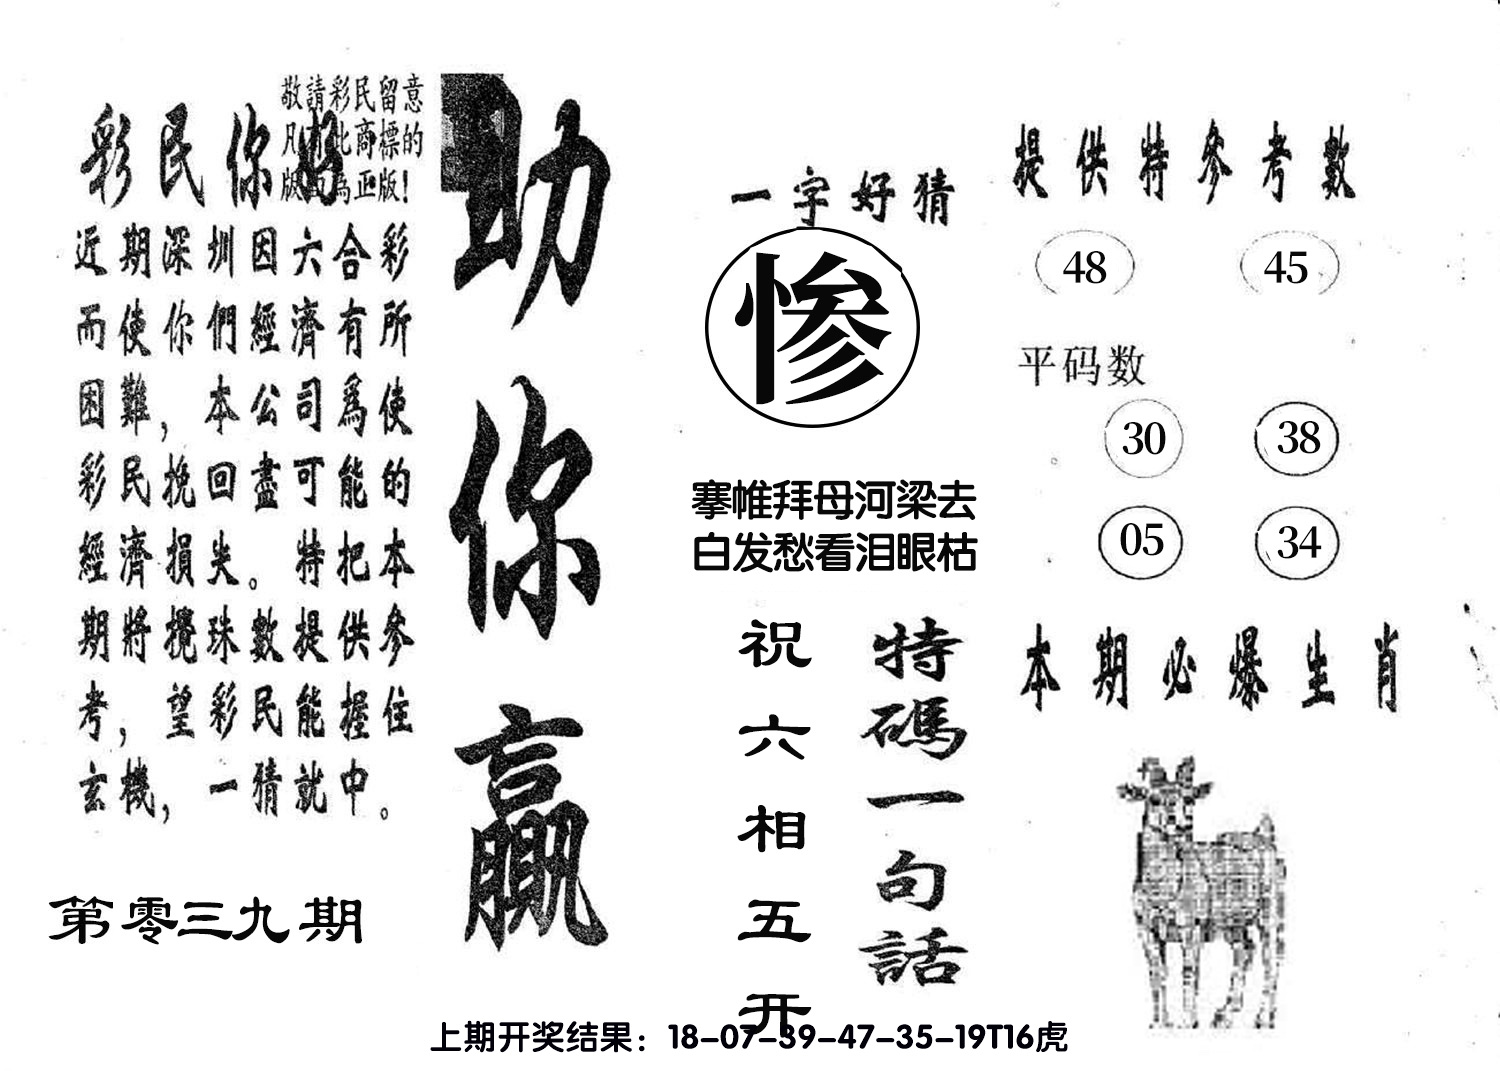 敬請彩民留意
凡有此商標的
版面為正版!
彩民你好
近期深圳因六合彩
而使你們經濟有所
困難，本公司爲使
彩民挽回盡可能的
經濟損失。特把本
期將攪珠數提供參
考，望彩民能握住
玄機，一猜就中。
第零三九期
助你贏
一字好猜
惨
搴帷拜母河梁去
白发愁看泪眼枯
特碼一句話
祝六相五开
提供特參考數
48 45
平码数
30 38
05 34
本期必爆生肖
上期开奖结果：18-07-39-47-35-19T16虎